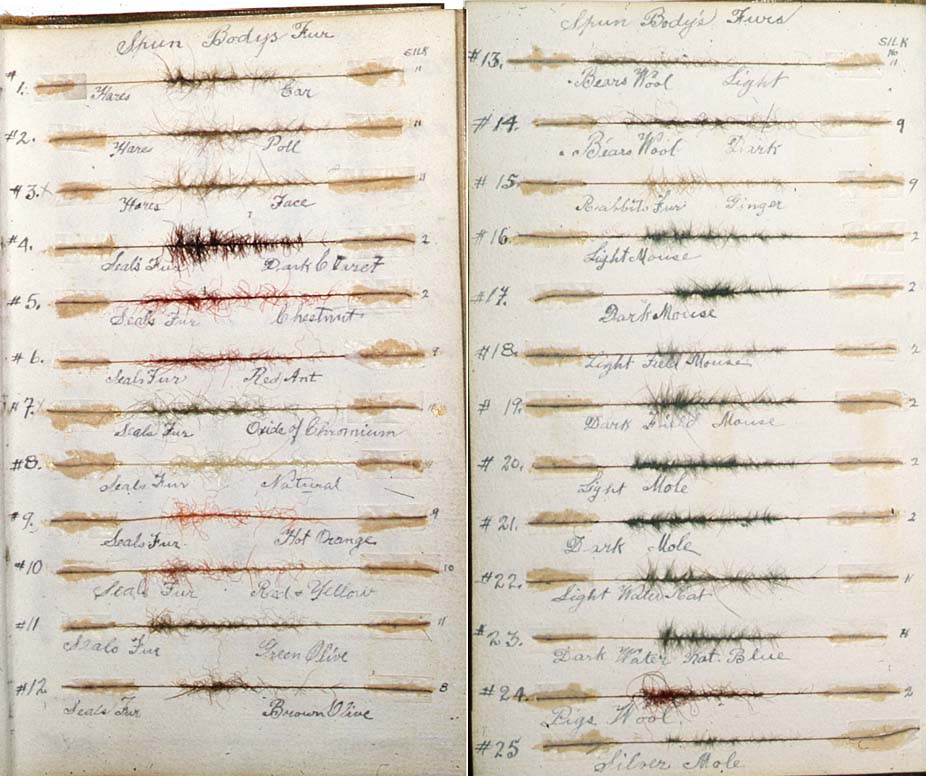 Spun Bodys Fur
SILK
1. 11
Hares Ear
#2. 11
Hares Poll
#3. 11
Hares Face
#4. 2
Seals Fur Dark Claret
#5. 2
Seals Fur Chestnut
#6.
Seals Fur Red Ant
#7.
Seals Fur Oxide of Chromium
#8.
Seals Fur Natural
#9. 9
Seals Fur Hot Orange
#10 10
Seals Fur Red & Yellow
#11 11
Seals Fur Green Olive
#12 8
Seals Fur Brown Olive
Spun Body's Furs
SILK
No
#13. 11
Bears Wool Light
#14. 9
Bears Wool Dark
#15. 9
Rabbits Fur Ginger
#16. 2
Light Mouse
#17. 2
Dark Mouse
#18. 2
Light Field Mouse
#19. 2
Dark Field Mouse
#20. 2
Light Mole
#21. 2
Dark Mole
#22. 11
Light Water Rat
#23.
Dark Water Rat. Blue
#24. 2
Pigs Wool.
#25
Silver Mole